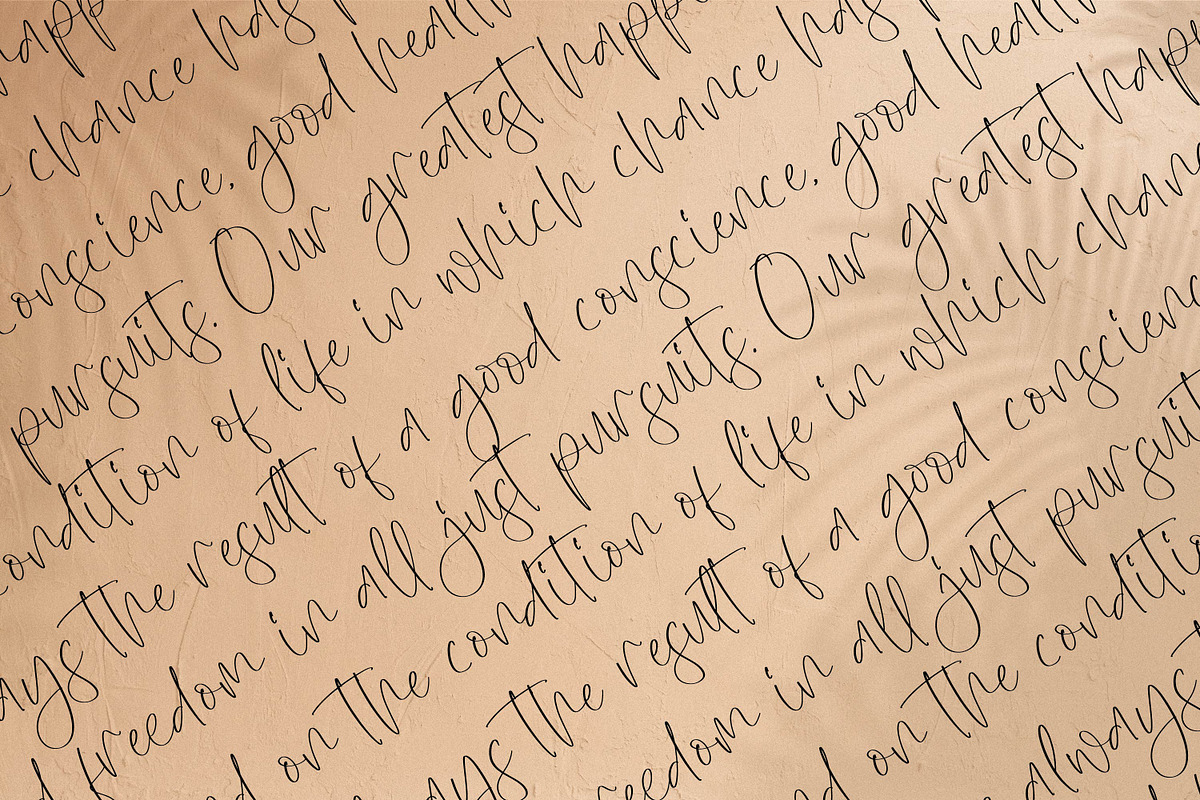 happ
chance has
conscience, good healt
pursuits. Our greatest happ
condition of life in which chance has
ays the result of a good conscience, good healt
d freedom in all just pursuits. Our greatest happ
d on the condition of life in which chanc
ays the result of a good conscienc
eedom in all just pursuit
d on the conditi
always